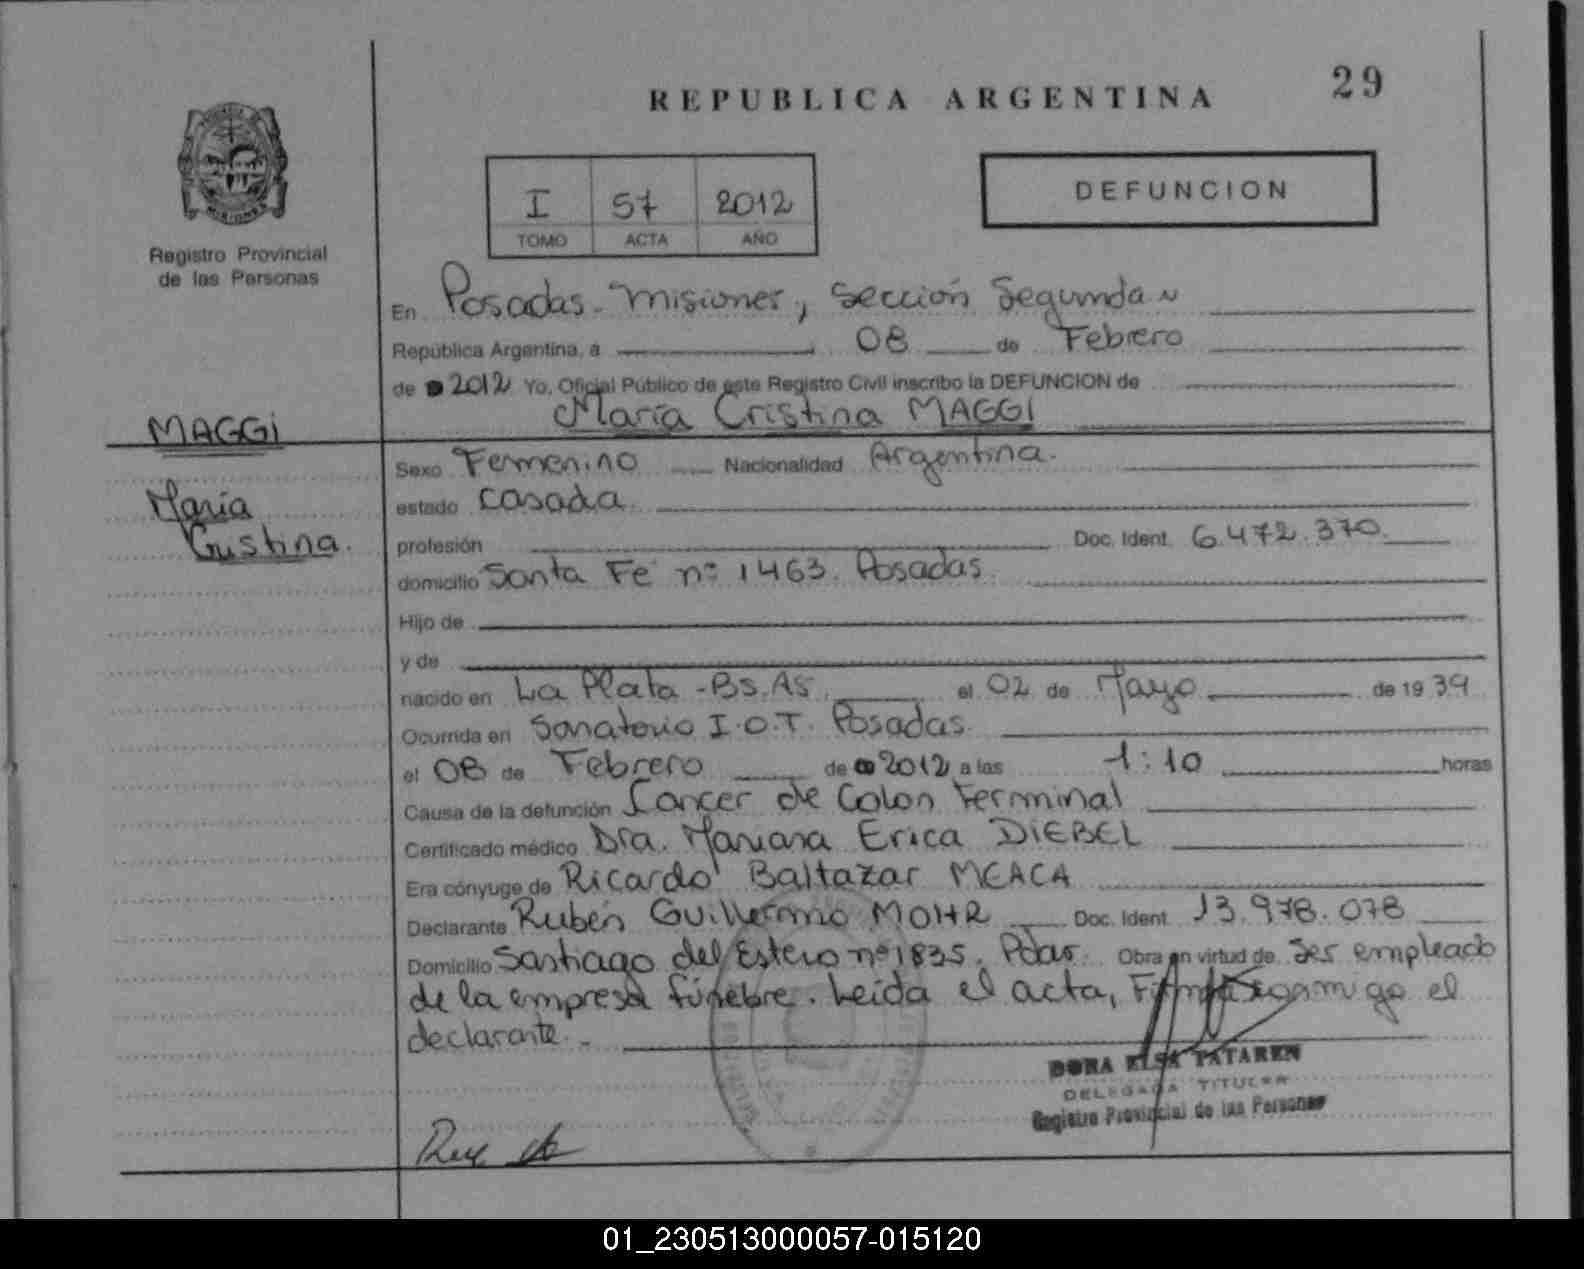 REPUBLICA ARGENTINA
29
I 57 2012
TOMO ACTA AÑO
DEFUNCION
MISIONES
Registro Provincial
de las Personas
En Posadas - Misiones, Sección Segunda
República Argentina, a 08 de Febrero
de 2012 Yo, Oficial Público de este Registro Civil inscribo la DEFUNCION de
María Cristina MAGGI
MAGGI
María
Cristina.
Sexo Femenino Nacionalidad Argentina.
estado casada
profesión Doc. Ident. 6.472.370.
domicilio Santa Fe nº 1463. Posadas
Hijo de
y de
nacido en La Plata - Bs. As. el 02 de Mayo de 1939
Ocurrida en Sanatorio I.O.T. Posadas.
el 08 de Febrero de 2012 a las 1:10 horas
Causa de la defunción Cancer de Colon Termminal
Certificado médico Dra. Mariana Erica DIEBEL
Era cónyuge de Ricardo Baltazar MEACA
Declarante Rubén Guillermo MOHR Doc. Ident. 13.978.078
Domicilio Santiago del Estero nº 1835. Pdas. Obra en virtud de ser empleado
de la empresa fúnebre. Leída el acta, Firma conmigo el
declarante.-
DORA ELSA TATAREN
DELEGADA TITULAR
Registro Provincial de las Personas
01_230513000057-015120